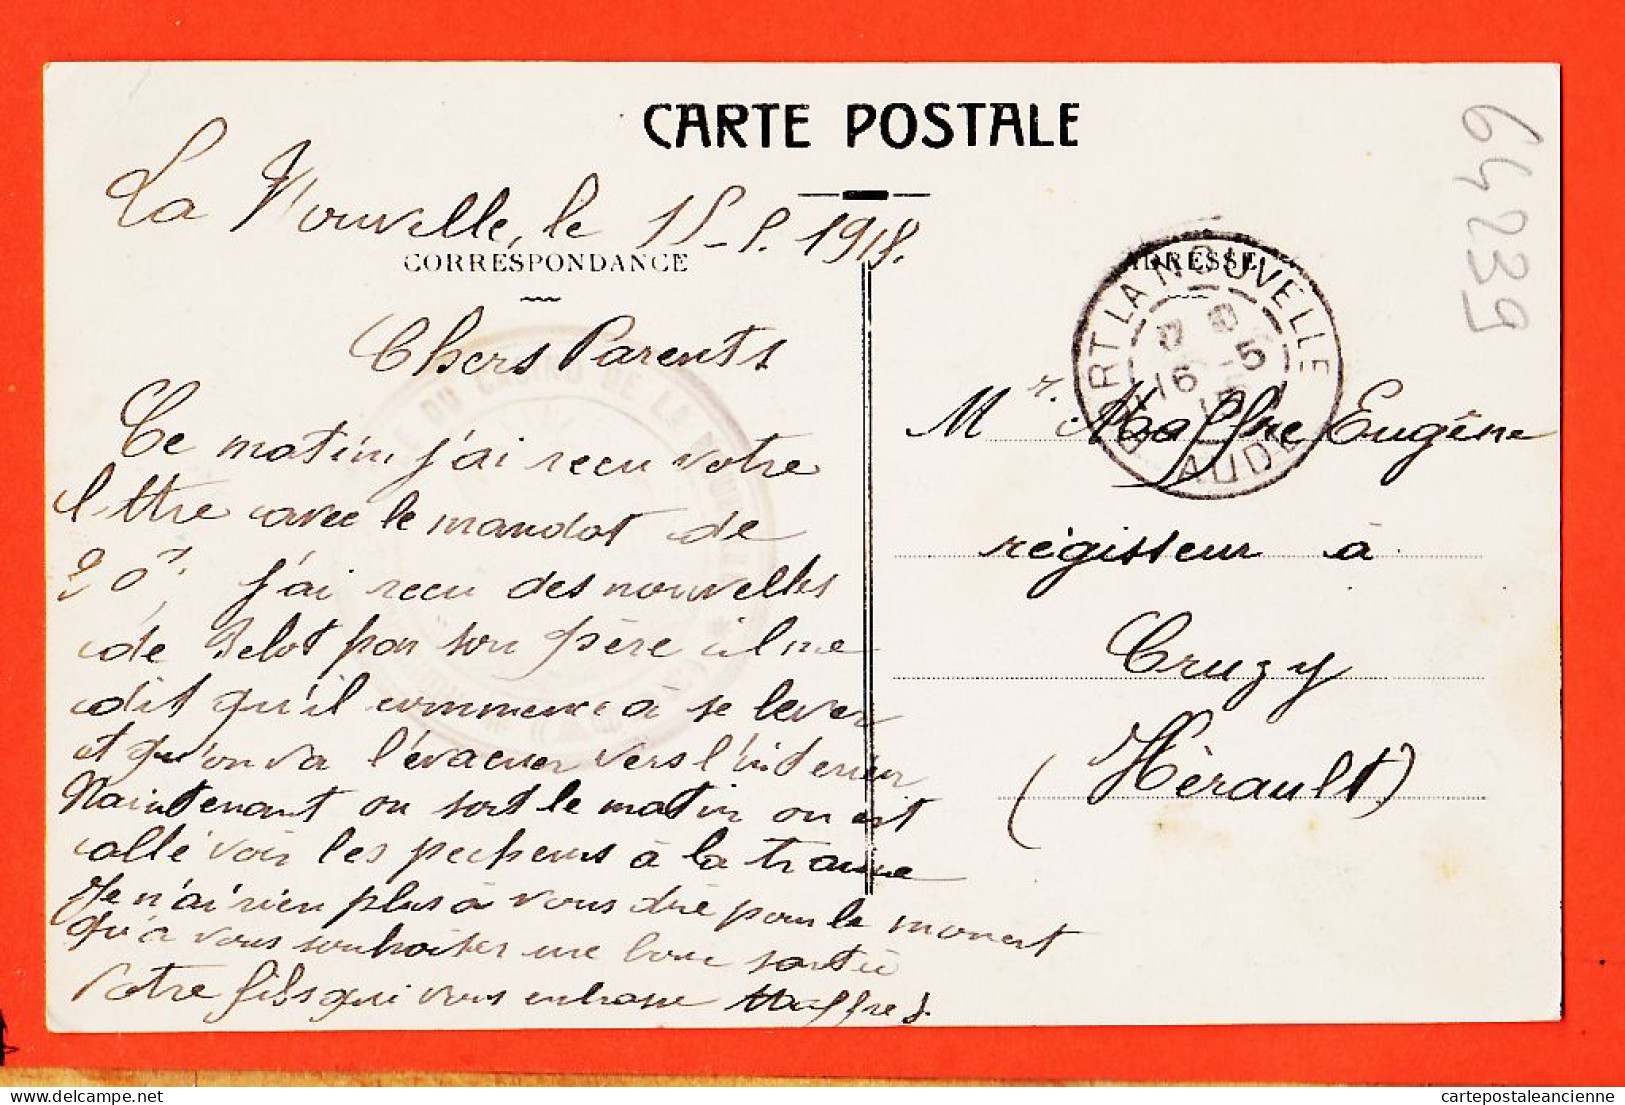 CARTE POSTALE
La Nouvelle, le 15-5.1915.
CORRESPONDANCE
Chers Parents
Ce matin j'ai recu votre
lettre avec le mandat de
20f; j'ai recu des nouvelles
de Belot par son père il me
dit qu'il commence à se lever
et qu'on va l'évacuer vers l'intérieur
Maintenant on sort le matin on est
allé voir les pecheurs à la traine
Je n'ai rien plus à vous dire pour le moment
qu'a vous souhaiter une bonne santée
Votre fils qui vous embrasse Maffre J.
ADRESSE
PORT LA NOUVELLE
16 -5
15
AUDE
DU CASINO DE LA NOUVELLE
Mr. Maffre Eugène
régisseur à
Cruzy
(Hérault)
64239
cartepostaleancienne